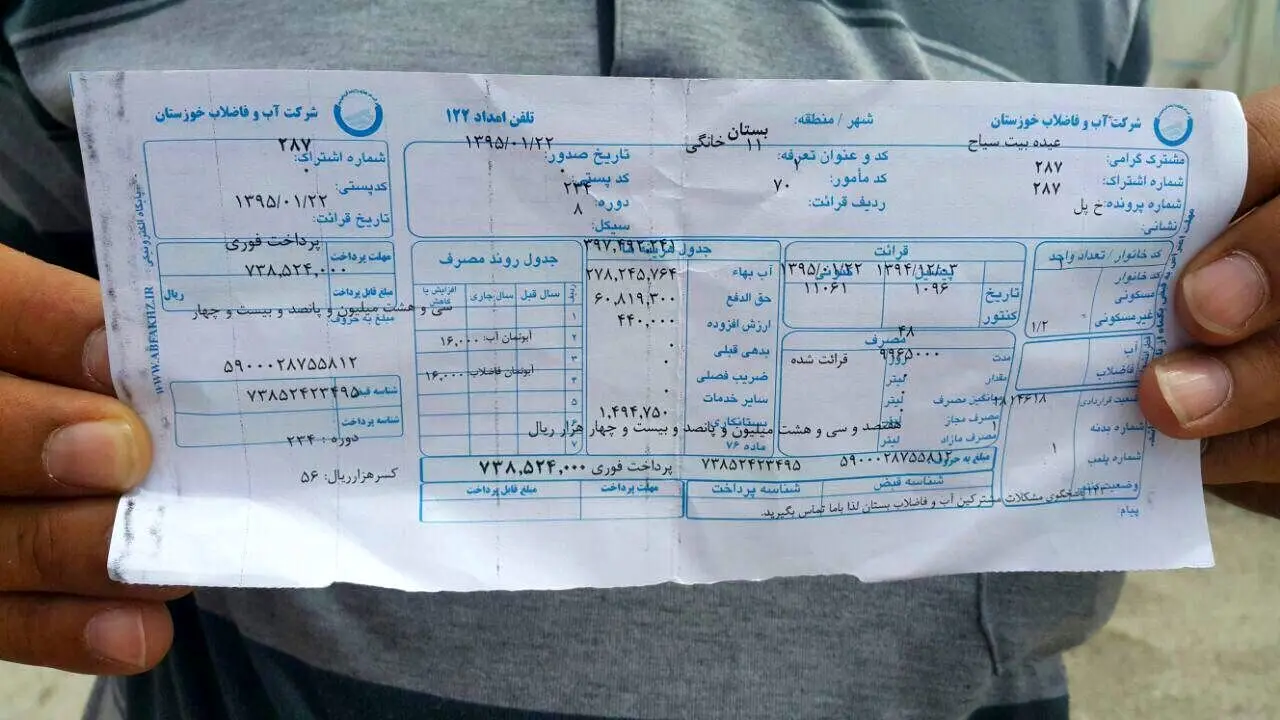 شرکت آب و فاضلاب خوزستان
مشترک گرامی:
عبده بیت سیاح
شماره اشتراک: ۲۸۷
۲۸۷
شماره پرونده: خ پل
نشانی:
شهر / منطقه: بستان
کد و عنوان تعرفه: ۱۱ خانگی
کد مأمور: ۲
ردیف قرائت: ۷۰
تلفن امداد ۱۲۲
تاریخ صدور: ۱۳۹۵/۰۱/۲۲
کد پستی: ۰
دوره: ۲۳۴
سیکل: ۸
کد خانوار / تعداد واحد
کد خانوار ۱
مسکونی
غیرمسکونی
۱/۲
آب
فاضلاب
شماره بدنه
شماره پلمب ۱
پیام:
قرائت
پیشین کنونی
تاریخ ۱۳۹۴/۱۲/۰۳ ۱۳۹۵/۰۱/۲۲
کنتور ۱۰۹۶ ۱۱۰۶۱
مصرف
مدت ۴۸ روز
مقدار ۹۹۶۵۰۰۰ لیتر قرائت شده
میانگین مصرف ۰ لیتر
مصرف مجاز لیتر
مصرف مازاد لیتر
آب بهاء
حق الدفع ۲۷۸,۲۴۵,۷۶۴
ارزش افزوده ۶۰,۸۱۹,۳۰۰
بدهی قبلی ۴۴۰,۰۰۰
ضریب فصلی ۰
سایر خدمات ۰
بستانکاری
ماده ۷۶ ۱,۴۹۴,۷۵۰
جدول روند مصرف
ردیف سال قبل سال جاری افزایش یا کاهش
۱
۲ آبونمان آب: ۱۶,۰۰۰
۳
۴ آبونمان فاضلاب: ۱۶,۰۰۰
۵
۷
هفتصد و سی و هشت میلیون و پانصد و بیست و چهار هزار ریال
مبلغ به حروف:
۵۹۰۰۰۲۸۷۵۵۸۱۲ ۷۳۸۵۲۴۲۳۴۹۵ پرداخت فوری ۷۳۸,۵۲۴,۰۰۰
شناسه قبض شناسه پرداخت مهلت پرداخت مبلغ قابل پرداخت
مشکلات مشترکین آب و فاضلاب بستان لذا باما تماس بگیرید.
شرکت آب و فاضلاب خوزستان
شماره اشتراک: ۲۸۷
کدپستی: ۰
تاریخ قرائت: ۱۳۹۵/۰۱/۲۲
مهلت پرداخت پرداخت فوری
مبلغ قابل پرداخت ۷۳۸,۵۲۴,۰۰۰ ریال
مبلغ به حروف:
سی و هشت میلیون و پانصد و بیست و چهار
۵۹۰۰۰۲۸۷۵۵۸۱۲
شناسه قبض ۷۳۸۵۲۴۲۳۴۹۵
شناسه پرداخت
دوره : ۲۳۴
کسرهزارریال: ۵۶
WWW.ABFAKHZ.IR